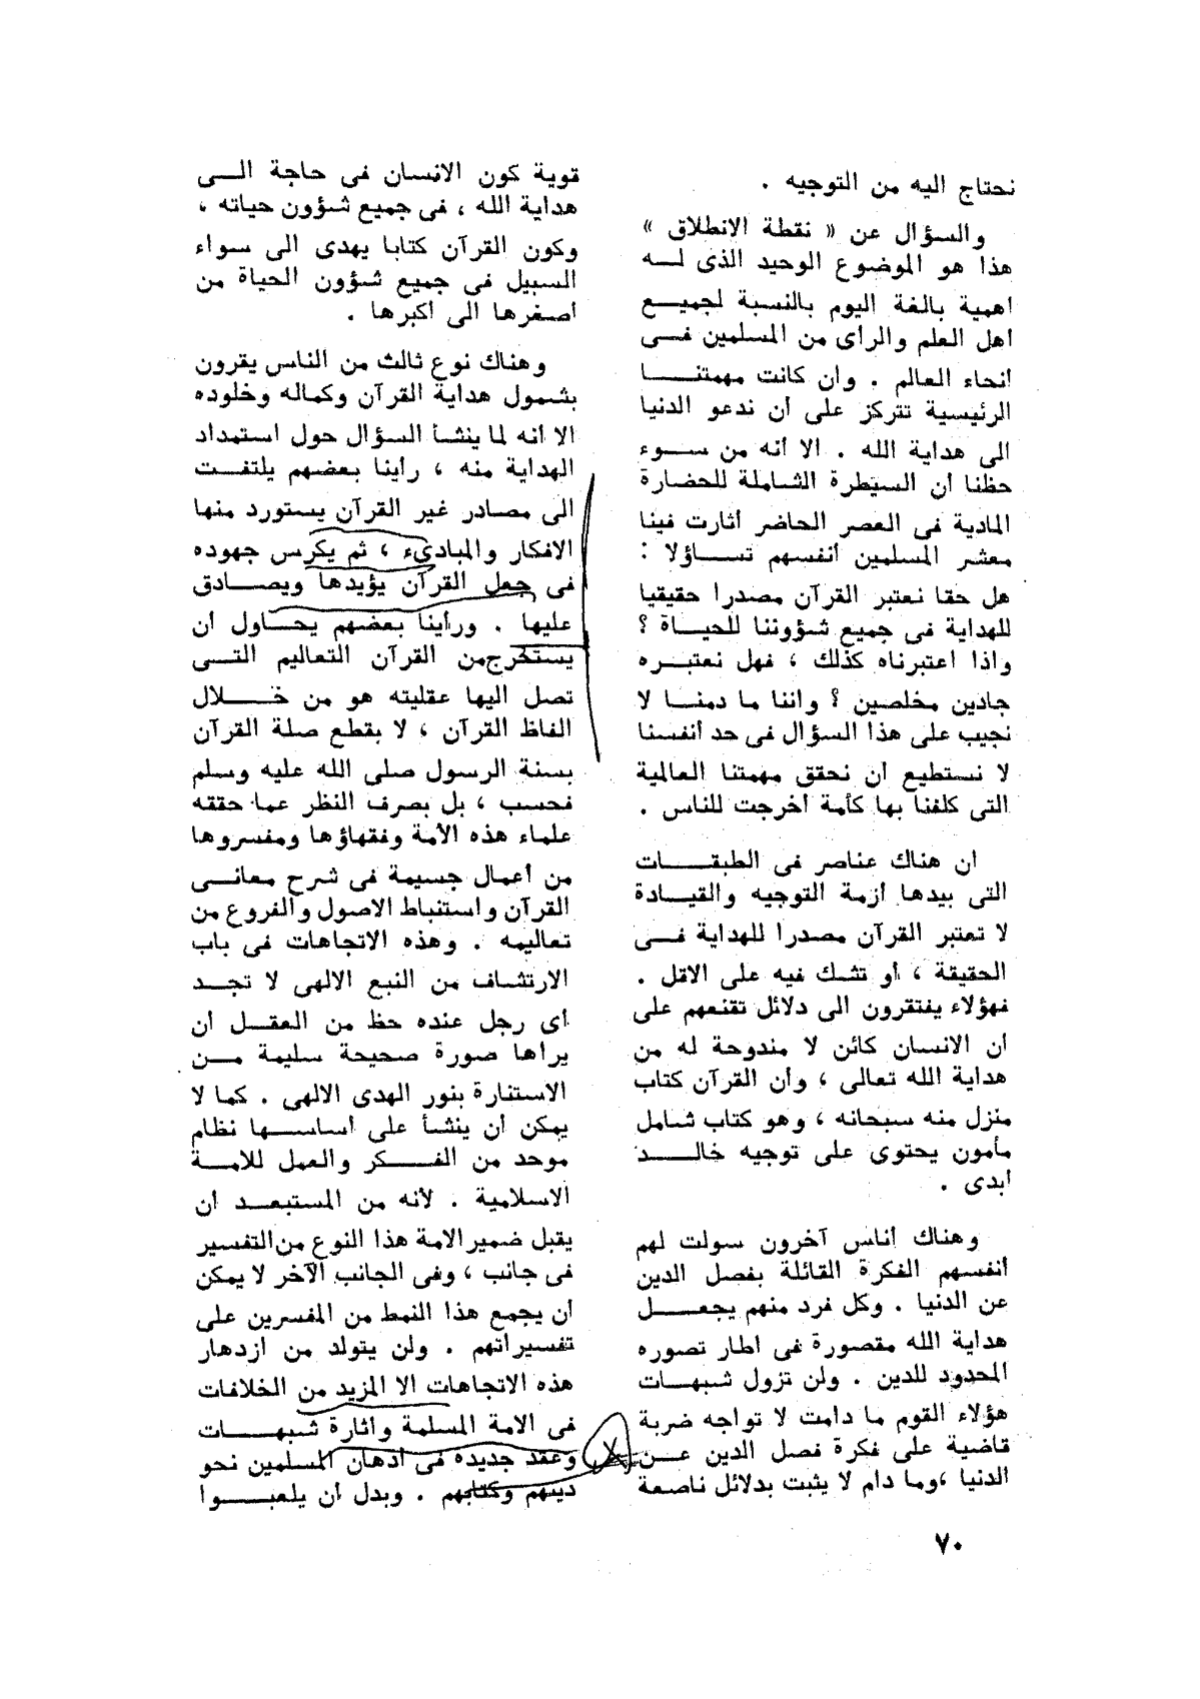 نحتاج اليه من التوجيه .
والسؤال عن « نقطة الانطلاق »
هذا هو الموضوع الوحيد الذى لـــه
اهمية بالغة اليوم بالنسبة لجميـــع
أهل العلم والرأى من المسلمين فـــى
أنحاء العالم . وان كانت مهمتنـــا
الرئيسية تتركز على أن ندعو الدنيا
الى هداية الله . الا أنه من ســـوء
حظنا أن السيطرة الشاملة للحضارة
المادية فى العصر الحاضر أثارت فينا
معشر المسلمين أنفسهم تســـاؤلا :
هل حقا نعتبر القرآن مصدرا حقيقيا
للهداية فى جميع شؤوننا للحيـــاة ؟
واذا اعتبرناه كذلك ، فهل نعتبـــره
جادين مخلصين ؟ واننا ما دمنـــا لا
نجيب على هذا السؤال فى حد أنفسنا
لا نستطيع أن نحقق مهمتنا العالمية
التى كلفنا بها كأمة أخرجت للناس .
ان هناك عناصر فى الطبقـــات
التى بيدها أزمة التوجيه والقيـادة
لا تعتبر القرآن مصدرا للهداية فـــى
الحقيقة ، أو تشك فيه على الاقل .
فهؤلاء يفتقرون الى دلائل تقنعهم على
أن الانسان كائن لا مندوحة له من
هداية الله تعالى ، وأن القرآن كتاب
منزل منه سبحانه ، وهو كتاب شامل
مأمون يحتوى على توجيه خالـــد
أبدى .
وهناك أناس آخرون سولت لهم
أنفسهم الفكرة القائلة بفصل الدين
عن الدنيا . وكل فرد منهم يجعـــل
هداية الله مقصورة فى اطار تصوره
المحدود للدين . ولن تزول شبهـات
هؤلاء القوم ما دامت لا تواجه ضربة
قاضية على فكرة فصل الدين عـــن
الدنيا ،وما دام لا يثبت بدلائل ناصعة
قوية كون الانسان فى حاجة الـــى
هداية الله ، فى جميع شؤون حياته ،
وكون القرآن كتابا يهدى الى سواء
السبيل فى جميع شؤون الحياة من
أصغرها الى أكبرها .
وهناك نوع ثالث من الناس يقرون
بشمول هداية القرآن وكماله وخلوده
الا أنه لما ينشأ السؤال حول استمداد
الهداية منه ، رأينا بعضهم يلتفـــت
الى مصادر غير القرآن يستورد منها
الافكار والمباديء ، ثم يكرس جهوده
فى جعل القرآن يؤيدها ويصـــادق
عليها . ورأينا بعضهم يحـاول أن
يستخرج من القرآن التعاليم التـــى
تصل اليها عقليته هو من خـــلال
الفاظ القرآن ، لا بقطع صلة القرآن
بسنة الرسول صلى الله عليه وسلم
فحسب ، بل بصرف النظر عما حققه
علماء هذه الأمة وفقهاؤها ومفسروها
من أعمال جسيمة فى شرح معانـــى
القرآن واستنباط الاصول والفروع من
تعاليمه . وهذه الاتجاهات فى باب
الارتشاف من النبع الالهى لا تجـــد
أى رجل عنده حظ من العقـــل أن
يراها صورة صحيحة سليمة مـــن
الاستنارة بنور الهدى الالهى . كما لا
يمكن أن ينشأ على أساسـها نظام
موحد من الفـــكر والعمل للامـــة
الاسلامية . لأنه من المستبعـــد أن
يقبل ضمير الامة هذا النوع من التفسير
فى جانب ، وفى الجانب الآخر لا يمكن
أن يجمع هذا النمط من المفسرين على
تفسيراتهم . ولن يتولد من ازدهار
هذه الاتجاهات الا المزيد من الخلافات
فى الامة المسلمة واثارة شبهـــات
وعقد جديده فى أذهان المسلمين نحو
دينهم وكتابهم . وبدل أن يلعبـــوا
٧٠